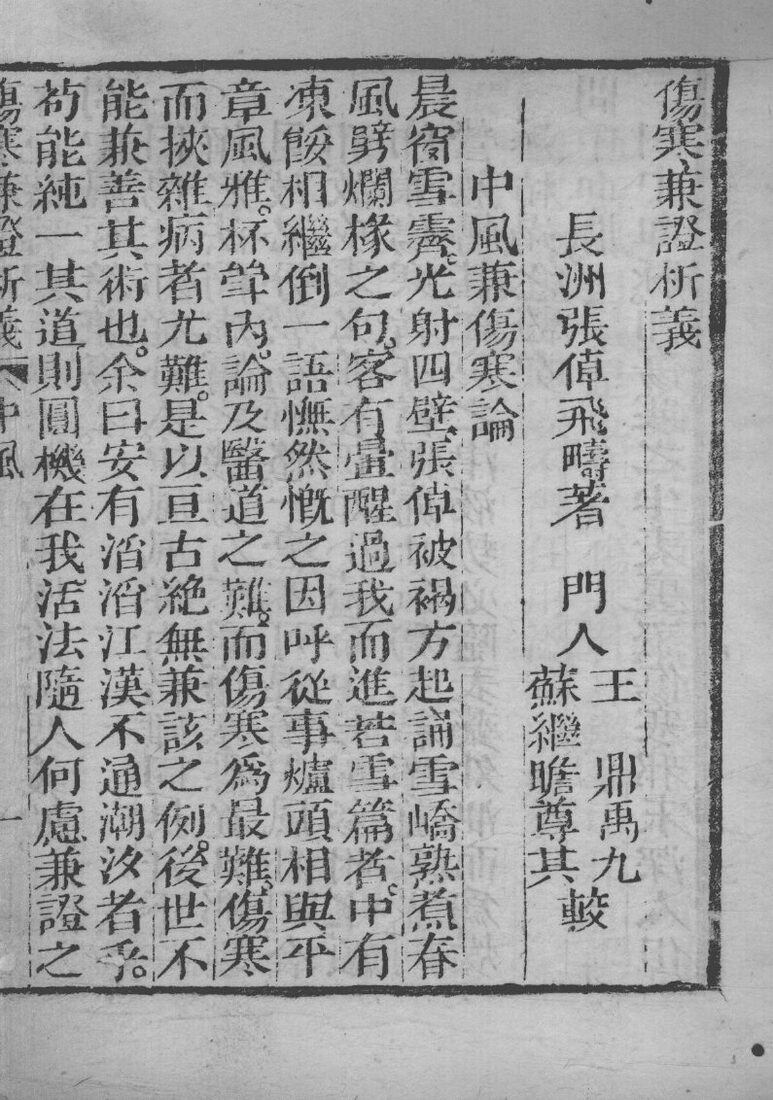 傷寒兼證析義
長洲張倬飛疇著　門人　王　鼎禹九　蘇繼瞻尊其　較
中風兼傷寒論
晨窗雪霽。光射四壁。張倬被褐方起。誦雪嶠熟煮春
風劈爛椽之句。客有疊醒過我而進苕雪篇者。中有
凍餒相繼倒一語憮然慨之因呼從事爐頭相與平
章風雅。杯斝內。論及醫道之難。而傷寒爲最難。傷寒
而挾雜病者尤難。是以亘古絶無兼該之例。後世不
能兼善其術也。余曰安有滔滔江漢不通潮汐者乎。
茍能純一其道則圓機在我活法隨人何慮兼證之
傷寒兼證析義　中風　一